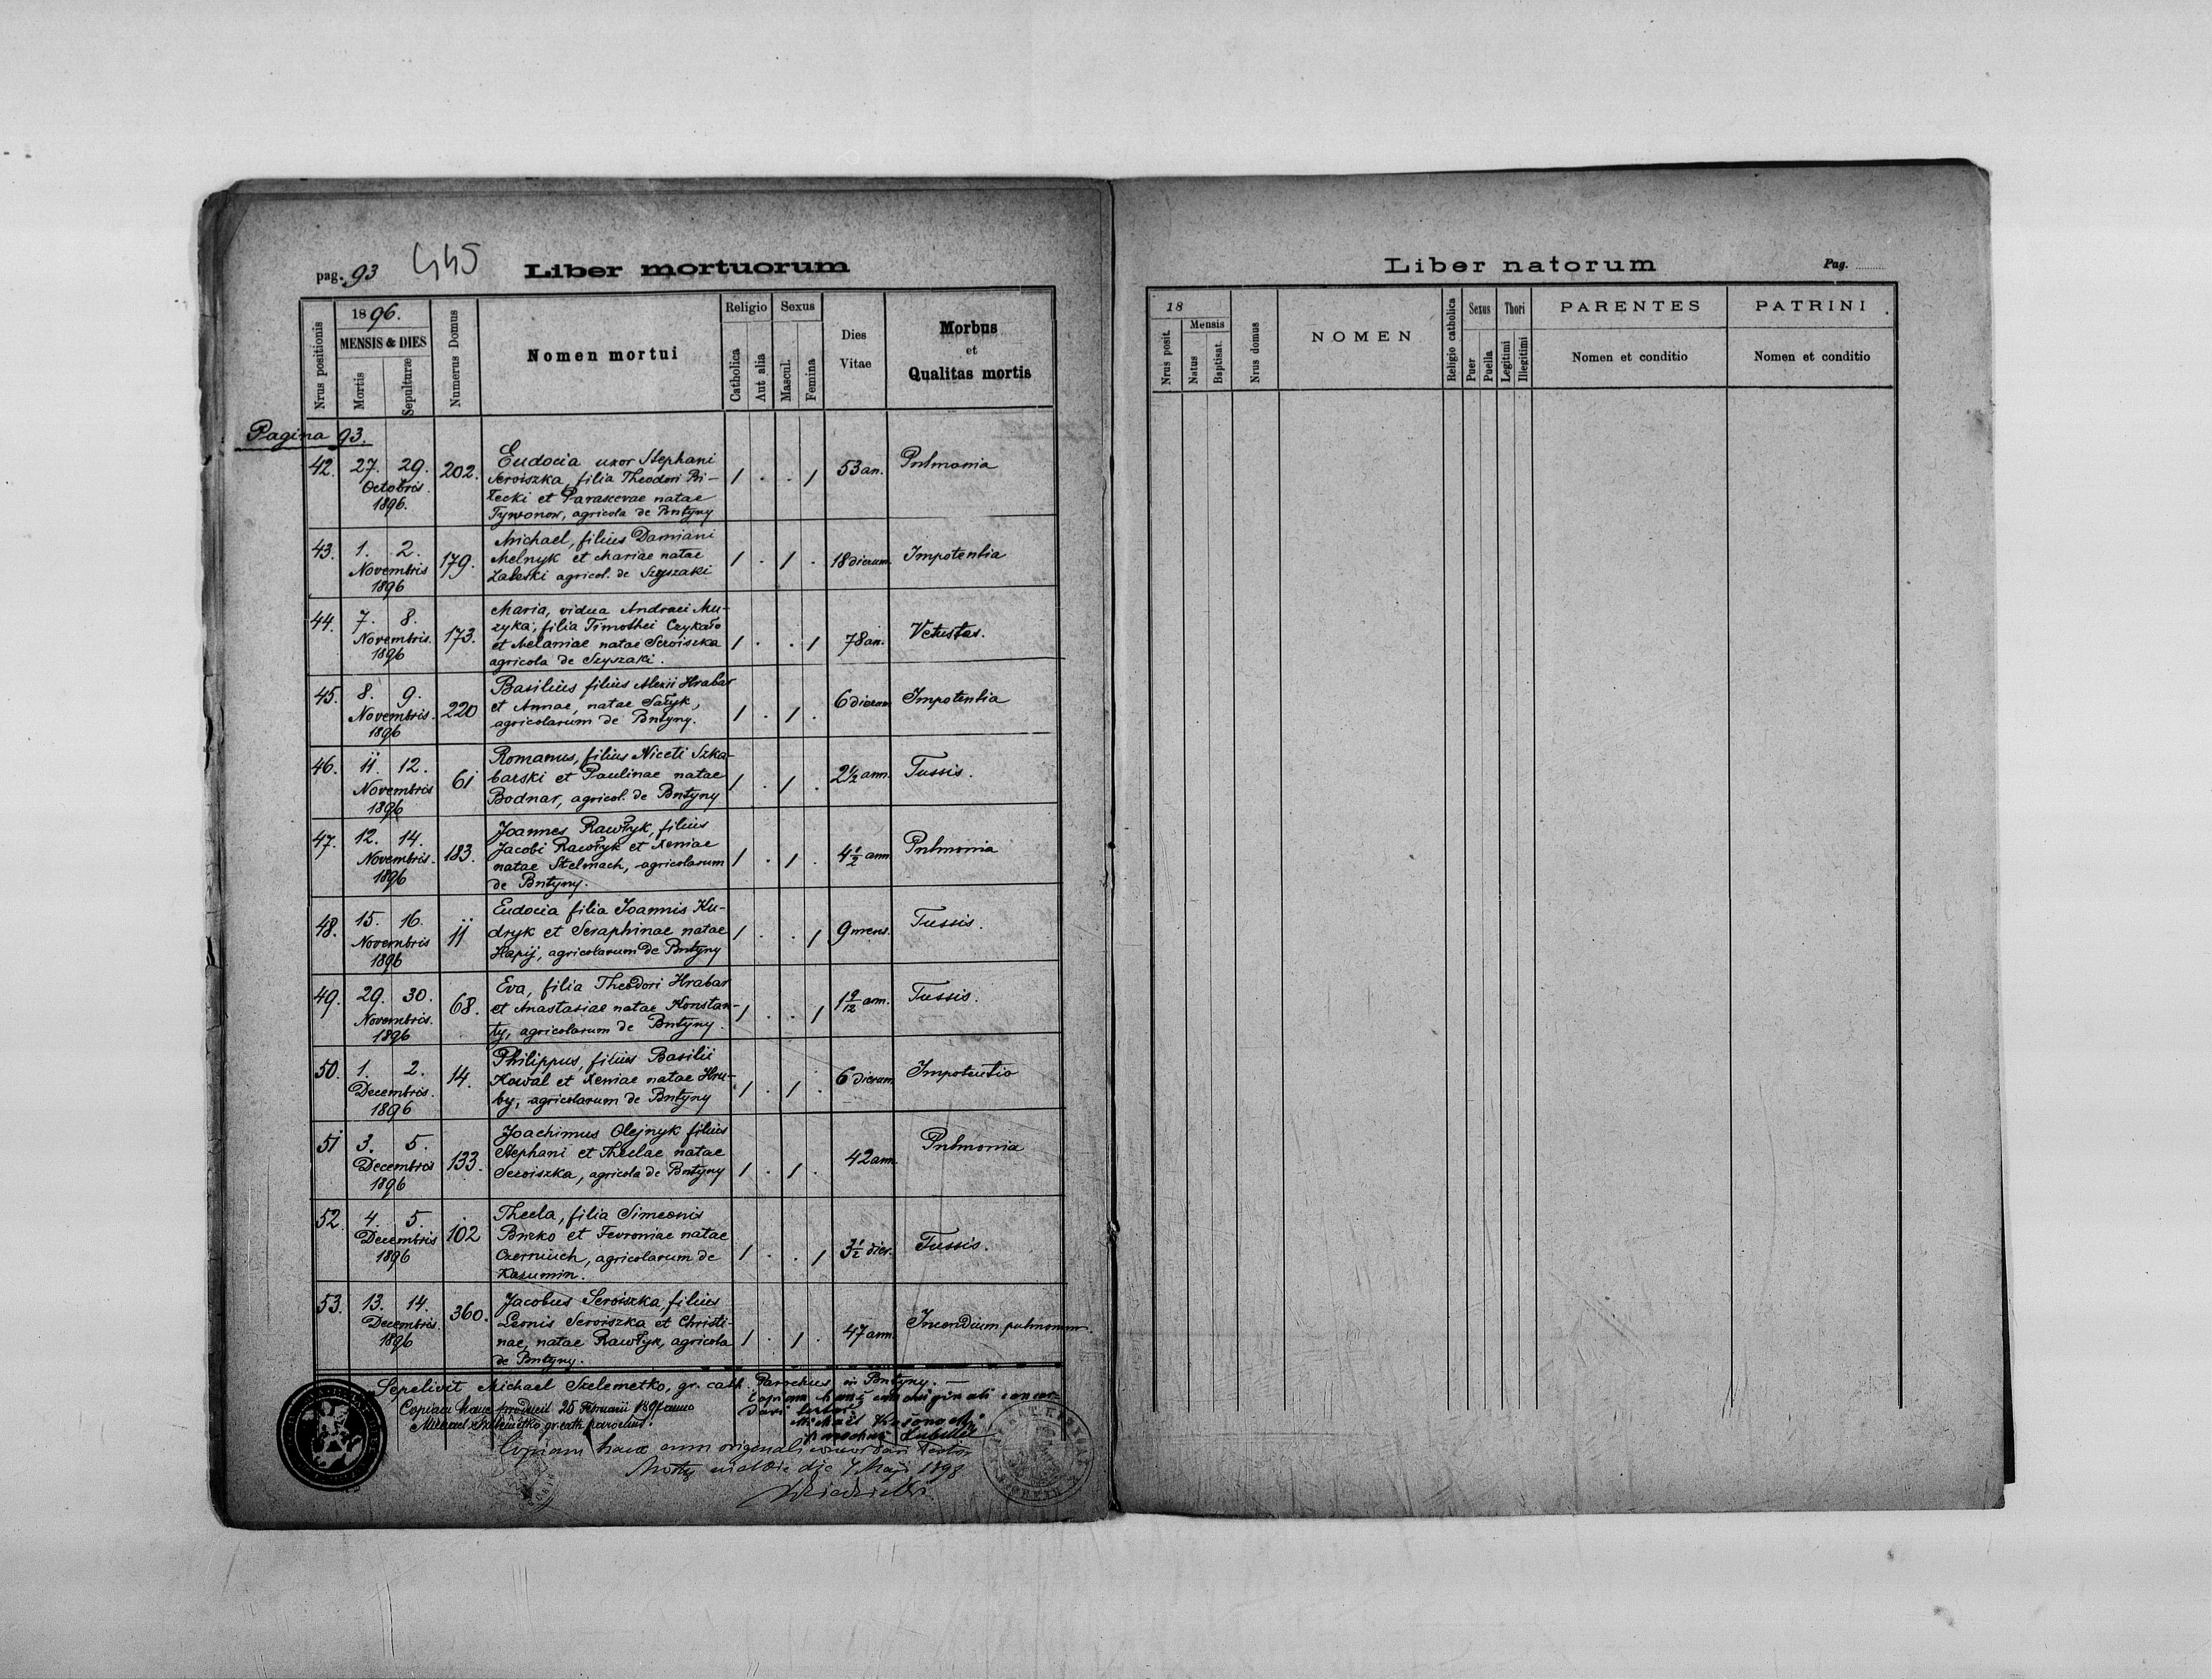 pag. 93 445 Liber mortuorum
Nrus positionis
1896.
MENSIS & DIES
Mortis
Sepulturæ
Numerus Domus
Nomen mortui
Religio
Catholica
Aut alia
Sexus
Mascul.
Femina
Dies
Vitae
Morbus
et
Qualitas mortis
Pagina 93.
42. 27. 29. Octobris. 1896. 202.
Eudocia uxor Stephani
Seroiszka, filia Theodori Bi-
lecki et Parascevae natae
Tywonow, agricola de Butyny
1 . . 1 53 an. Pulmonia
43. 1. 2. Novembris 1896 179.
Michael, filius Damiani
Melnyk et Mariae natae
Zaleski agricol. de Szyszaki
1 . 1 . 18 dierum. Impotentia
44. 7. 8. Novembris. 1896 173.
Maria, vidua Andraei Mu-
zyka, filia Timothei Czykało
et Melaniae natae Seroiszka
agricola de Szyszaki.
1 . . 1 78 an. Vetustas.
45. 8. 9. Novembris. 1896 220
Basilius filius Alexii Hrabar
et Annae, natae Sałyk,
agricolarum de Butyny.
1 . 1 . 6 dierum Impotentia
46. 11. 12. Novembris 1896 61
Romanus, filius Niceti Szka-
barski et Paulinae natae
Bodnar, agricol. de Butyny
1 . 1 . 2½ ann. Tussis.
47. 12. 14. Novembris. 1896 183.
Joannes Rawłyk, filius
Jacobi Rawłyk et Xeniae
natae Stelmach, agricolarum
de Butyny.
1 . 1 . 4½ ann Pulmonia
48. 15. 16. Novembris 1896 11
Eudocia filia Joannis Ku-
dryk et Seraphinae natae
Hapij, agricolarum de Butyny
1 . . 1 9 mens. Tussis.
49. 29. 30. Novembris. 1896 68.
Eva, filia Theodori Hrabar
et Anastasiae natae Konstan-
ty, agricolarum de Butyny.
1 . . 1 1 9/12 ann. Tussis.
50. 1. 2. Decembris. 1896 14.
Philippus, filius Basilii
Kowal et Xeniae natae Hru-
by, agricolarum de Butyny
1 . 1 . 6 dierum Impotentia
51 3. 5. Decembris 1896 133.
Joachimus Olejnyk filius
Stephani et Theclae natae
Seroiszka, agricola de Butyny
1 . 1 . 42 ann. Pulmonia
52. 4. 5. Decembris 1896 102
Thecla, filia Simeonis
Burko et Fevroniae natae
Czerniuch, agricolarum de
Kazumin.
1 . . 1 3½ dier. Tussis.
53. 13. 14. Decembris. 1896 360.
Jacobus Seroiszka, filius
Leonis Seroiszka et Christi-
nae, natae Rawłyk, agricola
de Butyny.
1 . 1 . 47 ann. Incendium pulmonum.
Sepelivit Michael Szelemetko, gr. cath. Parochus in Butyny. —
Copiam hanc produxit 25 Februarii 1897 anno
Michael Szelemetko gr. cath. parochus.
Copiam hanc cum originali concor-
dari testor
Michaël
parochus
Copiam hanc cum originali concordari testor
Mosty wielkie die 7 Maji 1898
Liber natorum Pag.
18
Nrus posit.
Mensis
Natus
Baptisat.
Nrus domus
NOMEN
Religio catholica
Sexus
Puer
Puella
Thori
Legitimi
Illegitimi
PARENTES
Nomen et conditio
PATRINI
Nomen et conditio